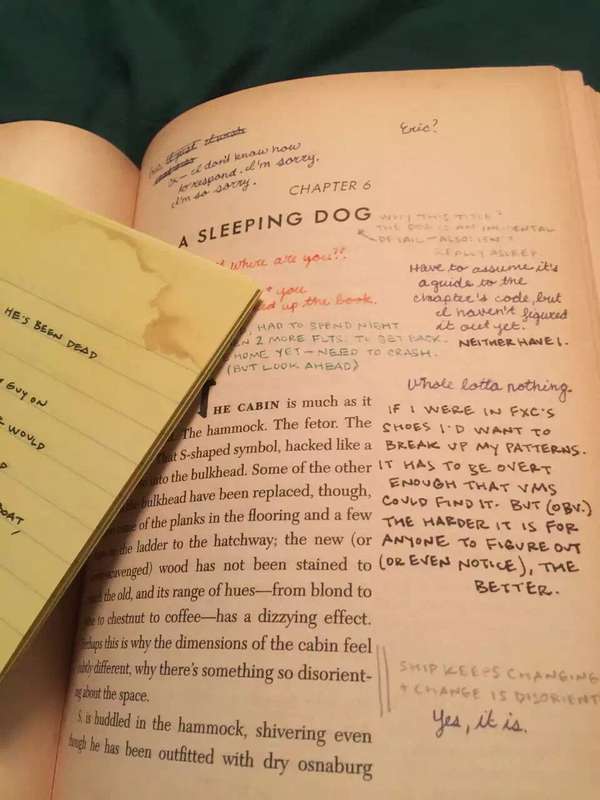 Eric?
X — I don't know how
to respond. I'm sorry.
I'm so sorry.
CHAPTER 6
A SLEEPING DOG
WHY THIS TITLE?
THE DOG IS AN INCIDENTAL
DETAIL — ALSO: ISN'T
REALLY ASLEEP.
where are you??
you
up the book.
Have to assume it's
a guide to the
chapter's code, but
I haven't figured
it out yet.
NEITHER HAVE I.
HAD TO SPEND NIGHT
2 MORE FLTS. TO GET BACK.
HOME YET — NEED TO CRASH.
(BUT LOOK AHEAD)
Whole lotta nothing.
IF I WERE IN FXC'S
SHOES I'D WANT TO
BREAK UP MY PATTERNS.
IT HAS TO BE OVERT
ENOUGH THAT VMS
COULD FIND IT. BUT (OBV.)
THE HARDER IT IS FOR
ANYONE TO FIGURE OUT
(OR EVEN NOTICE), THE
BETTER.
HE'S BEEN DEAD
GUY ON
WOULD
BOAT,
THE CABIN is much as it
The hammock. The fetor. The
that S-shaped symbol, hacked like a
into the bulkhead. Some of the other
bulkhead have been replaced, though,
some of the planks in the flooring and a few
the ladder to the hatchway; the new (or
scavenged) wood has not been stained to
the old, and its range of hues—from blond to
to chestnut to coffee—has a dizzying effect.
Perhaps this is why the dimensions of the cabin feel
subtly different, why there's something so disorient-
ing about the space.
SHIP KEEPS CHANGING
+ CHANGE IS DISORIENT
Yes, it is.
S. is huddled in the hammock, shivering even
though he has been outfitted with dry osnaburg